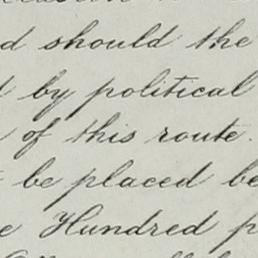 should the
by political
of this route.
be placed be
Hundred p